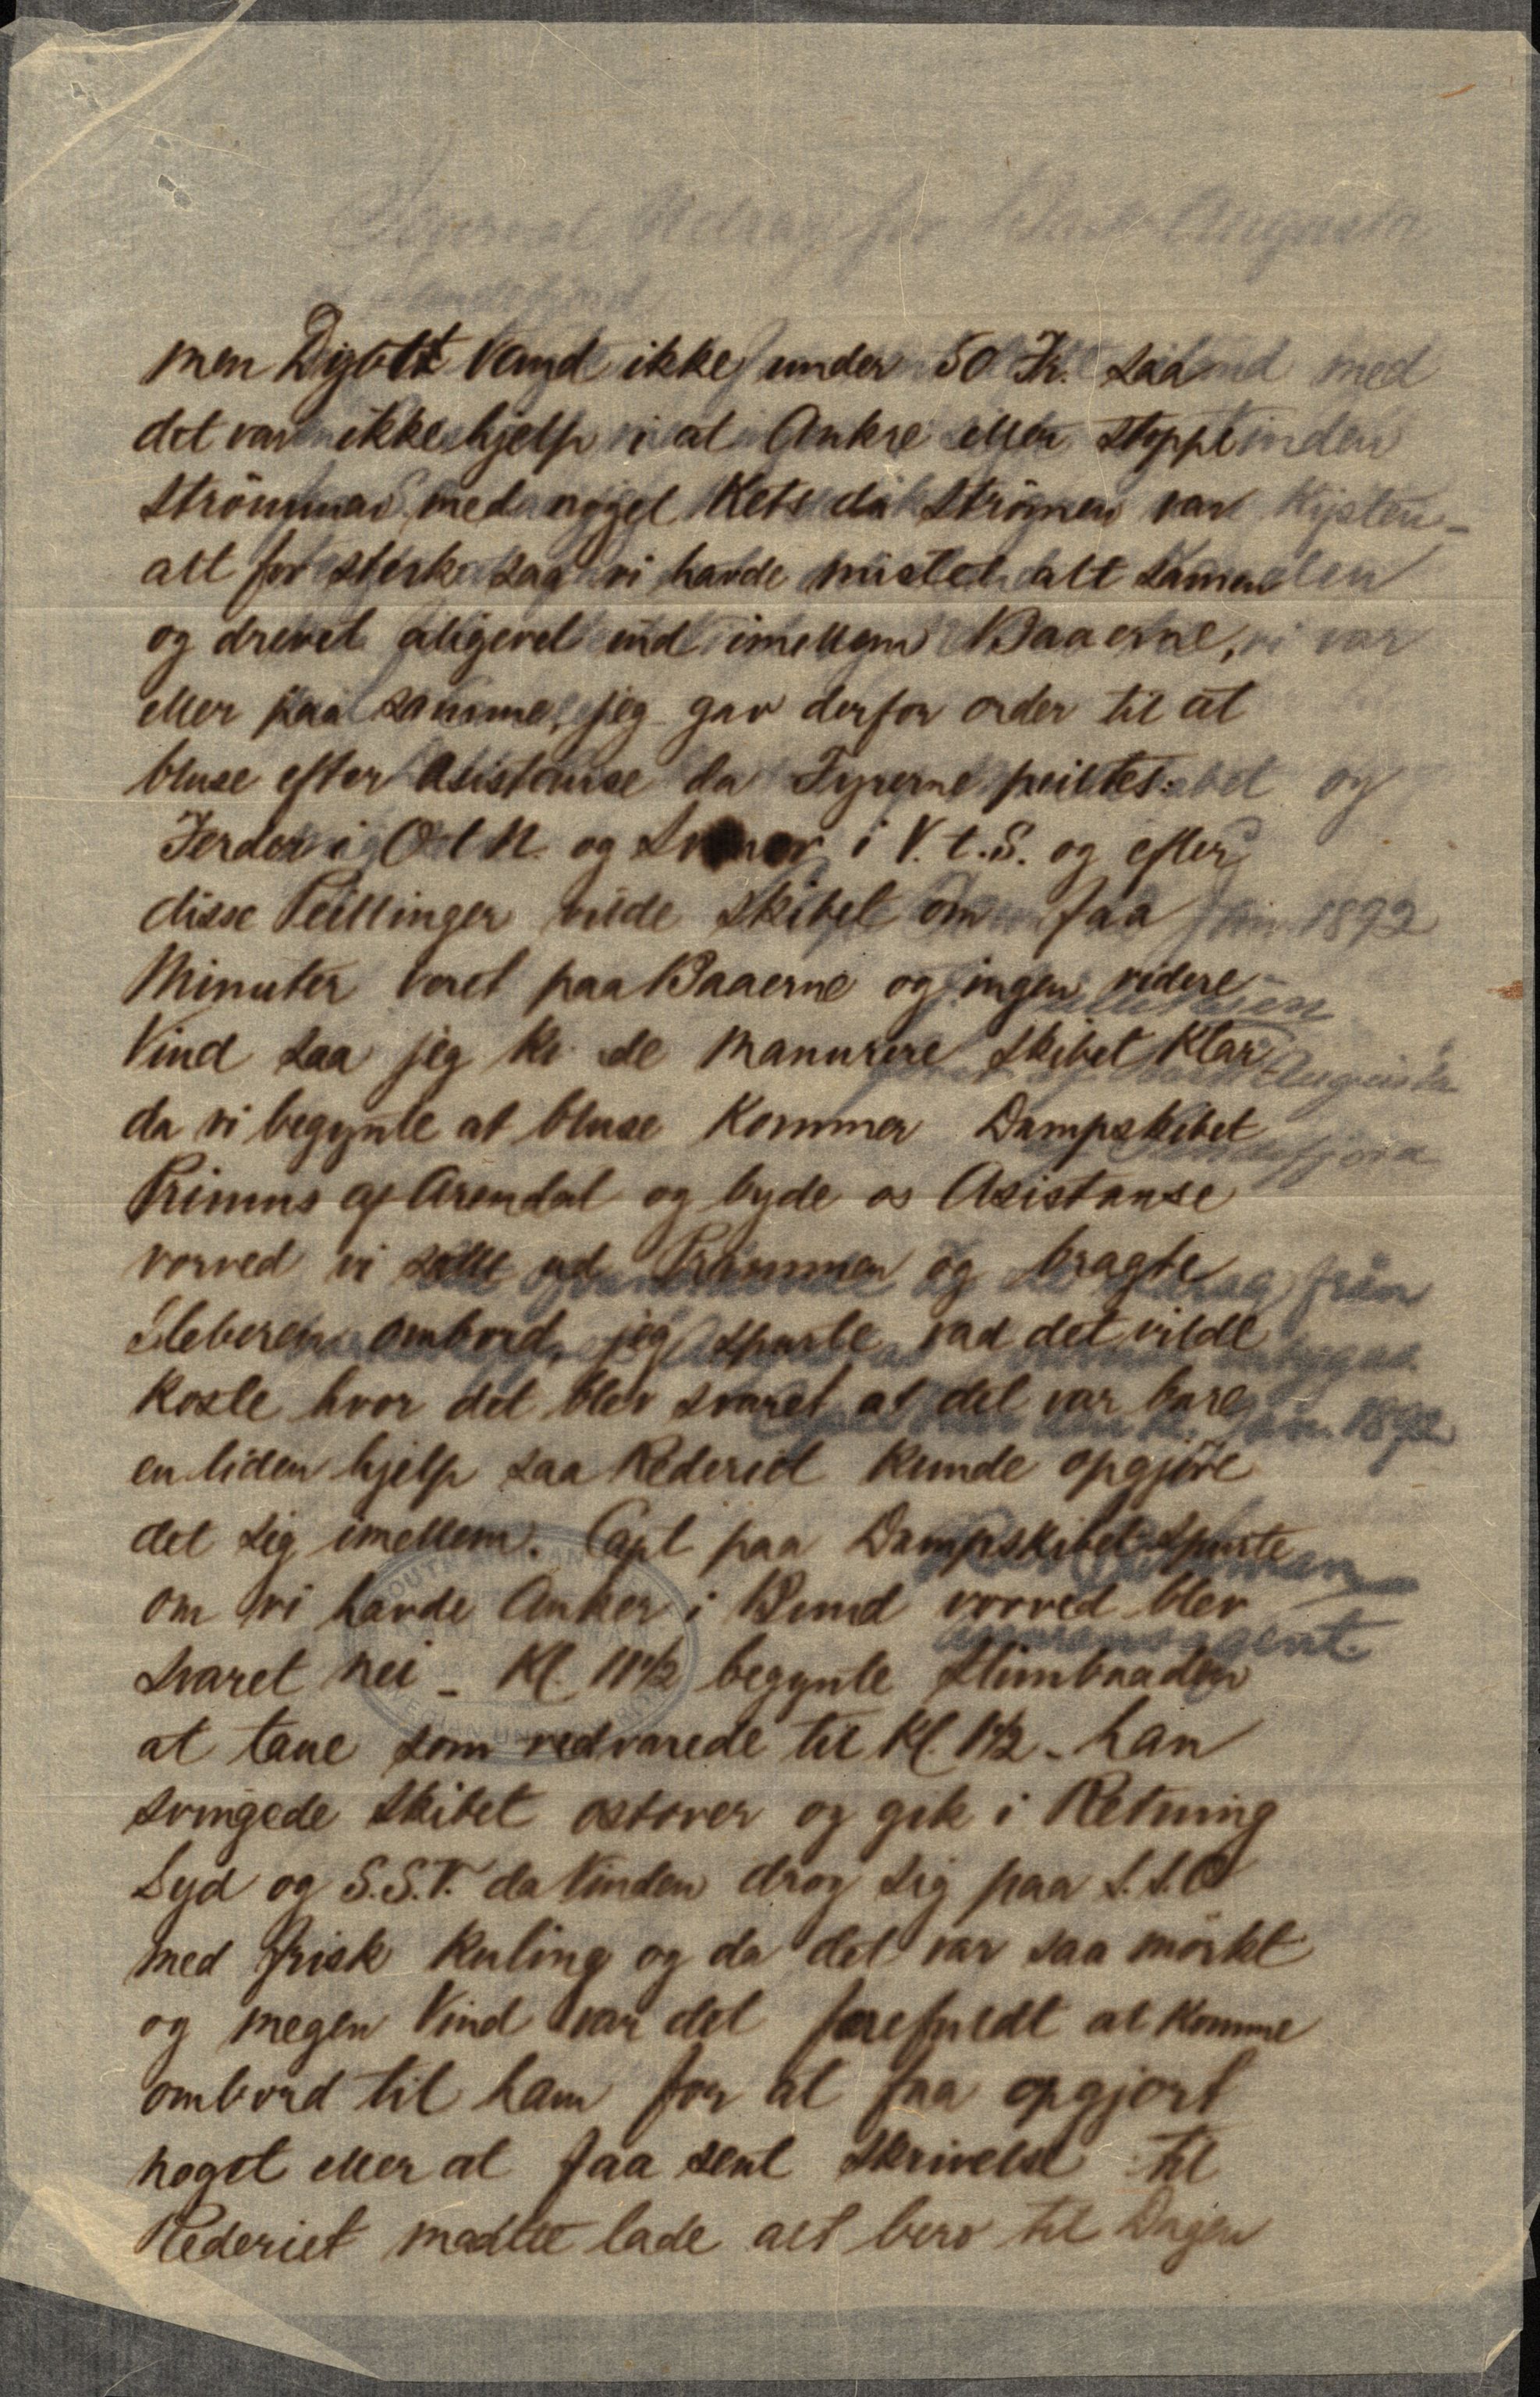 men Dybt Vand ikke under 50 Fv. saa
det var ikke hjelp i at Ankre eller stoppe
Strömmen med noget Kets da Strömen var
alt for sterk saa vi havde mistet alt samen
og drevet aligevel ind imellem Baaerne,
eller paa samme, jeg gav derfor order til at
bluse efter Asistanse da Fyrerne peiltes:
Ferder i O t N. og Svenør i V. t. S. og efter
disse Peillinger vilde Skibet om faa
Minuter veret paa Baaerne og ingen videre
Vind saa jeg ku de Manurere Skibet Klar
da vi begynte at bluse Kommer Dampskibet
Primus af Arendal og byde os Asistanse
vorved vi satte ud Prammen og bragte
Sleberen ombord, jeg spurte vad det vilde
koste hvor det blev svaret at det var bare
en liden hjelp saa Rederiet kunde opgjöre
det sig imellem. Capt paa Dampskibet spurte
om vi havde Anker i Bund vorved blev
svaret nei _ Kl. 11½ begynte Stimbaaden
at taue som vedvarede til Kl. 1½ - han
svingede Skibet ostover og gik i Retning
Syd og S.S.V. da Vinden drog sig paa S.S.O
med frisk Kuling og da det var saa mörkt
og megen Vind var det farefuldt at komme
ombord til ham for at faa opgjort
noget eller at faa sent skrivelse til
Rederiet maatte lade alt bero til Dagen